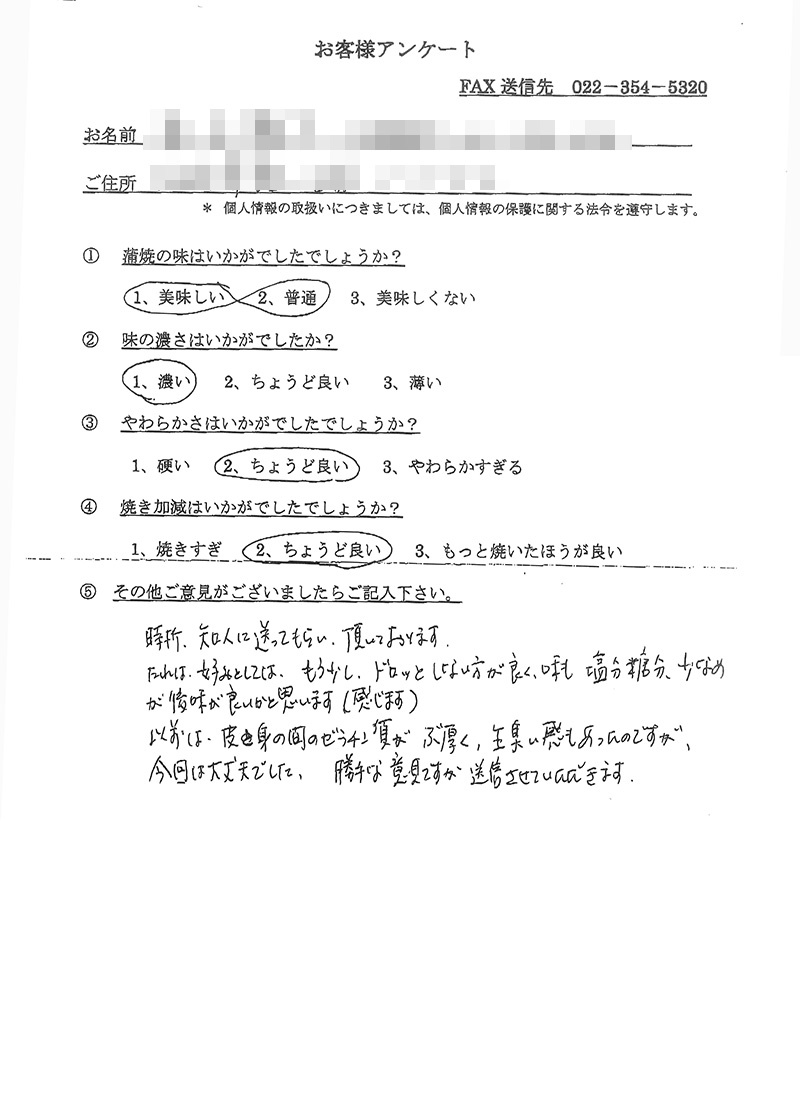 お客様アンケート
FAX 送信先　022－354－5320
お名前
ご住所
＊ 個人情報の取扱いにつきましては、個人情報の保護に関する法令を遵守します。
① 蒲焼の味はいかがでしたでしょうか？
1、美味しい　2、普通　3、美味しくない
② 味の濃さはいかがでしたか？
1、濃い　2、ちょうど良い　3、薄い
③ やわらかさはいかがでしたでしょうか？
1、硬い　2、ちょうど良い　3、やわらかすぎる
④ 焼き加減はいかがでしたでしょうか？
1、焼きすぎ　2、ちょうど良い　3、もっと焼いたほうが良い
⑤ その他ご意見がございましたらご記入下さい。
時折、知人に送ってもらい、頂いております。
たれは、好みとしては、もう少し、ドロッとしない方が良く、味も 塩分糖分、少なめ
が後味が良いかと思います（感じます）
以前は、皮と身の間のゼラチン質が ぶ厚く、生臭い感もあったのですが、
今回は大丈夫でした。 勝手な意見ですが 送信させていただきます.